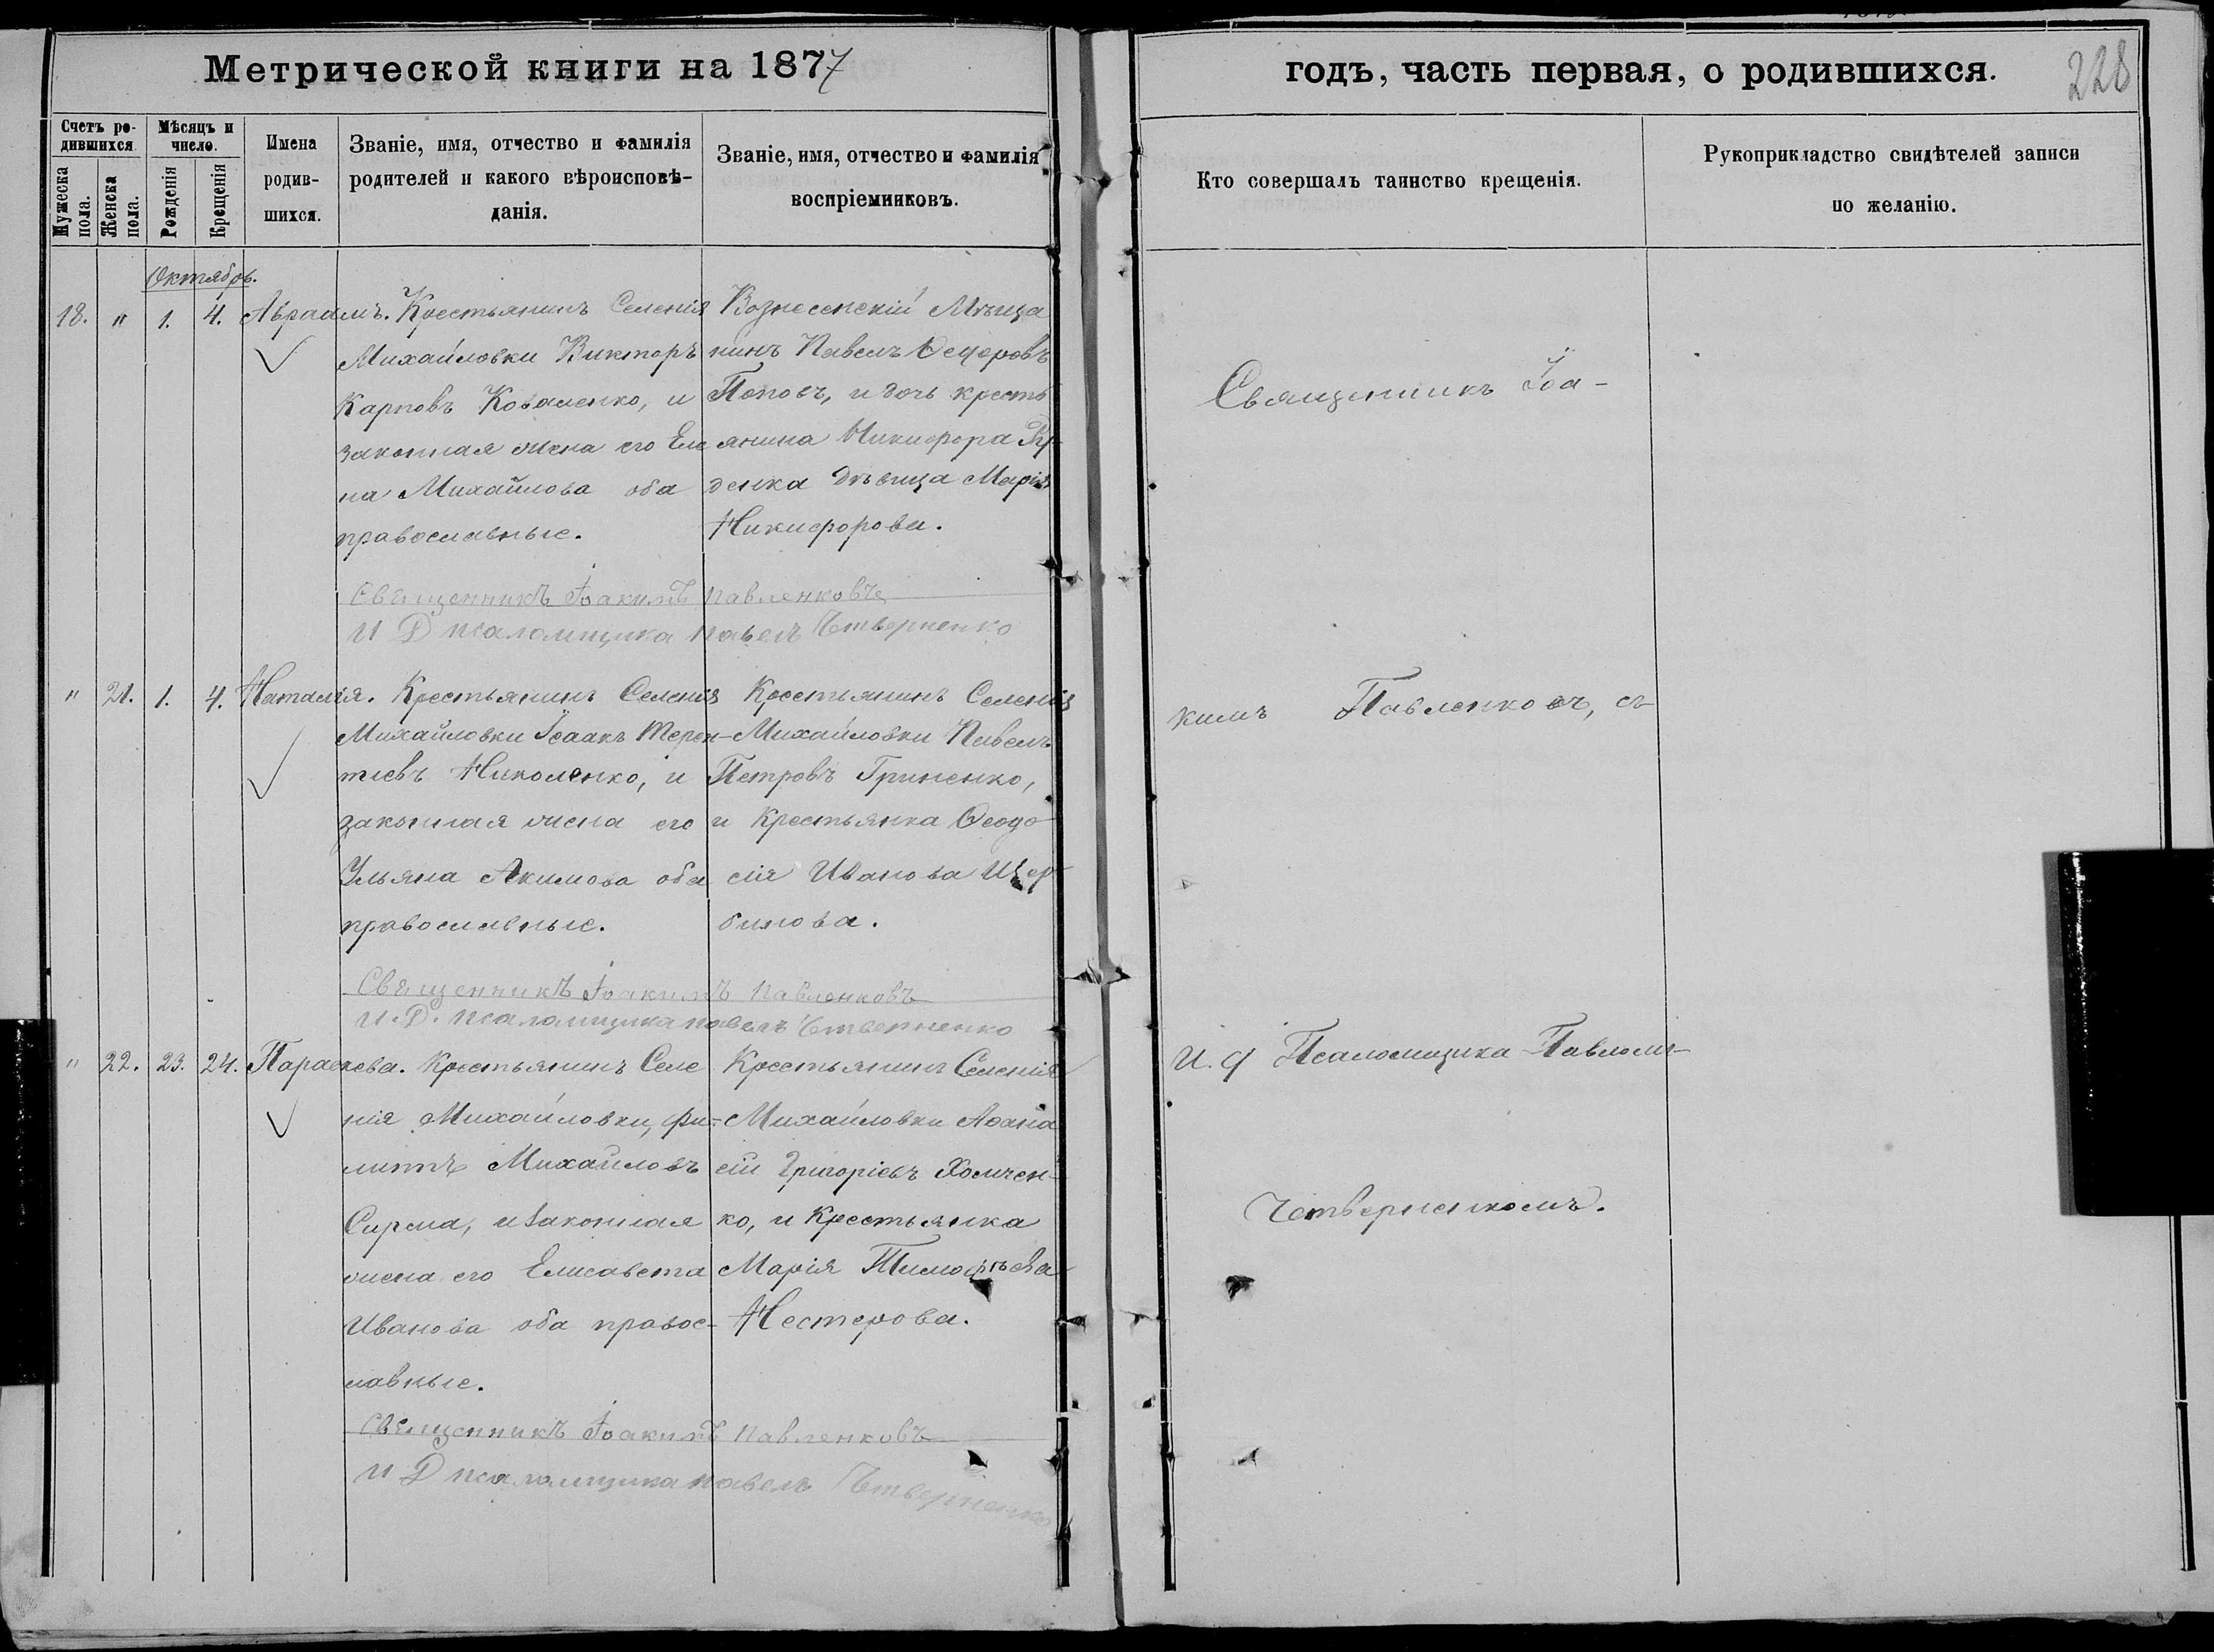 Метрической книги на 1877
Счетъ ро-
дившихся.
Мужеска пола.
Женска пола.
Мѣсяцъ и
число.
Рожденія
Крещенія
Имена
родив-
шихся.
Званіе, имя, отчество и фамилія
родителей и какого вѣроисповѣ-
данія.
Званіе, имя, отчество и фамилія
воспріемниковъ.
Октябрь.
18. " 1. 4. Авраамъ.
Крестьянинъ Селенія
Михайловки Викторъ
Карповъ Коваленко, и
законная жена его Еле
на Михайлова оба
православные.
Вознесенскій Мѣща
нинъ Павелъ Ѳедоровъ
Поповъ, и дочь кресть
янина Никифора
денка дѣвица Марія
Никифорова.
Священникъ Іоакимъ Павленковъ
И Д псаломщика Павелъ Четверненко
" 21. 1. 4. Наталія.
Крестьянинъ Селенія
Михайловки Ісаакъ Терен-
тіевъ Николенко, и
законная жена его
Ульяна Акимова оба
православные.
Крестьянинъ Селенія
Михайловки Павелъ
Петровъ Гриненко,
и Крестьянка Ѳеодо
сія Иванова Щер
бинова.
Священникъ Іоакимъ Павленковъ
И. Д. псаломщика Павелъ Четверненко
" 22. 23. 24. Параскева.
Крестьянинъ Селе
нія Михайловки, Фи-
липпъ Михайловъ
Сирма, и законная
жена его Елисавета
Иванова оба правос-
лавные.
Крестьянинъ Селенія
Михайловки Аѳана
сій Григоріевъ Хомчен-
ко, и Крестьянка
Марія Тимофѣева
Нестерова.
Священникъ Іоакимъ Павленковъ
И Д псаломщика Павелъ Четверненко
годъ, часть первая, о родившихся.
228
Кто совершалъ таинство крещенія.
Рукоприкладство свидѣтелей записи
по желанію.
Священникъ Іоа-
кимъ Павленковъ, съ
И. Д Псаломщика Павломъ
Четверненкомъ.